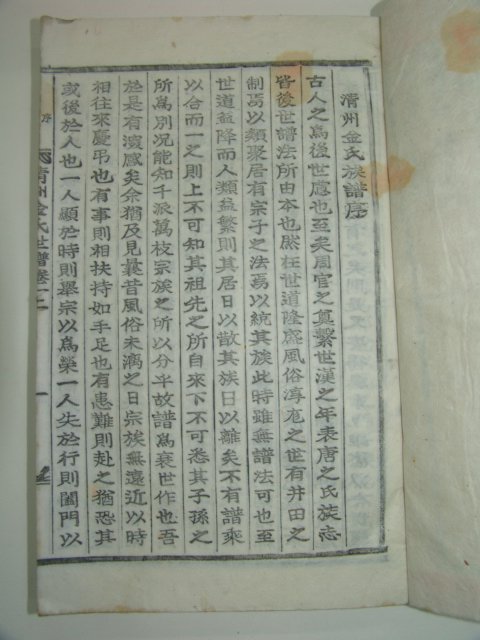 清州金氏族譜序
古人之爲後世慮也至矣周官之奠繫世漢之年表唐之氏族志
皆後世譜法所由本也然在世道隆盛風俗淳厖之世有井田之
制焉以類聚居有宗子之法焉以統其族此時雖無譜法可也至
世道益降而人類益繁則其居日以散其族日以離矣不有譜乘
以合而一之則上不可知其祖先之所自來下不可悉其子孫之
所爲別況能知千派萬枝宗族之所以分乎故譜爲衰世作也吾
於是有深感矣余猶及見曩昔風俗未漓之日宗族無遠近以時
相往來慶弔也有事則相扶持如手足也有患難則赴之猶恐其
或後於人也一人顯於時則擧宗以爲榮一人失於行則闔門以
淸州金氏世譜卷一
序
一